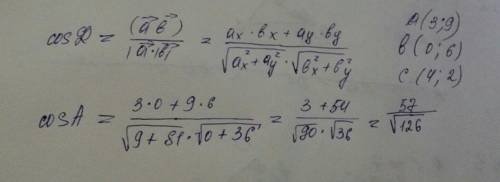 cosα = (a⃗ b⃗) / |a⃗·b⃗| = (ax·bx + ay·by) / (√(ax²+ay²)·√(bx²+by²))
A(3;9)
B(0;6)
C(4;2)
cosA = (3·0+9·6) / (√(9+81)·√(0+36)) = (3+54) / (√90·√36) = 57/√126